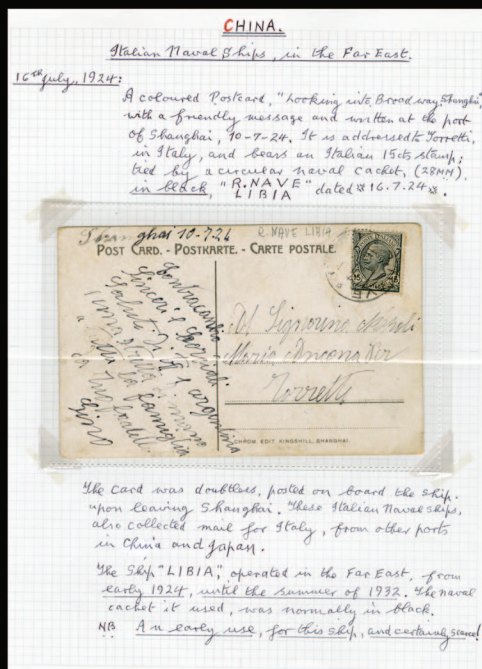 CHINA.
Italian Naval Ships, in the Far East.
16th July, 1924:
A coloured Postcard, "Looking into Broadway, Shanghai",
with a friendly message and written at the port
of Shanghai, 10-7-24. It is addressed to Torretti,
in Italy, and bears an Italian 15cts stamp;
tied by a circular naval cachet, (28MM),
in black, "R.NAVE" dated *16.7.24*.
LIBIA
Shanghai 10-7-24
R. NAVE LIBIA
POST CARD. - POSTKARTE. - CARTE POSTALE.
Contraccambio
Sinceri e Cordiali
Saluti
famiglia
Gino
Al Signorino
Maria Ancona per
Torretti
CHROM. EDIT. KINGSHILL, SHANGHAI.
The card was doubtless, posted on board the ship.
upon leaving Shanghai. These Italian Naval ships,
also collected mail for Italy, from other ports
in China and Japan.
The Ship "LIBIA", operated in the Far East, from
early 1924, until the summer of 1932. The naval
cachet it used, was normally in black.
NB An early use, for this ship, and certainly scarce!